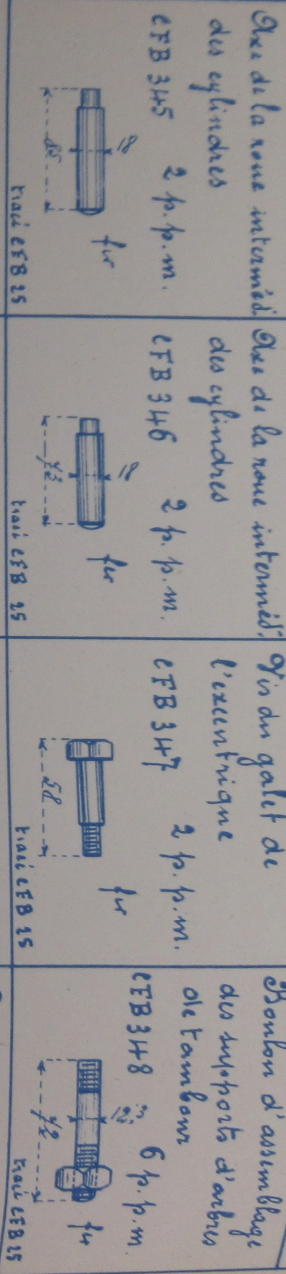 Axe de la roue interméd.
des cylindres
CFB 345 2 p.p.m.
18
fer
tracé CFB 25
Axe de la roue interméd.
des cylindres
CFB 346 2 p.p.m.
18
73
fer
tracé CFB 25
Vis du galet de
l'excentrique
CFB 347 2 p.p.m.
58
fer
tracé CFB 25
Boulon d'assemblage
des supports d'arbres
de tambour
CFB 348 6 p.p.m.
fer
tracé CFB 25